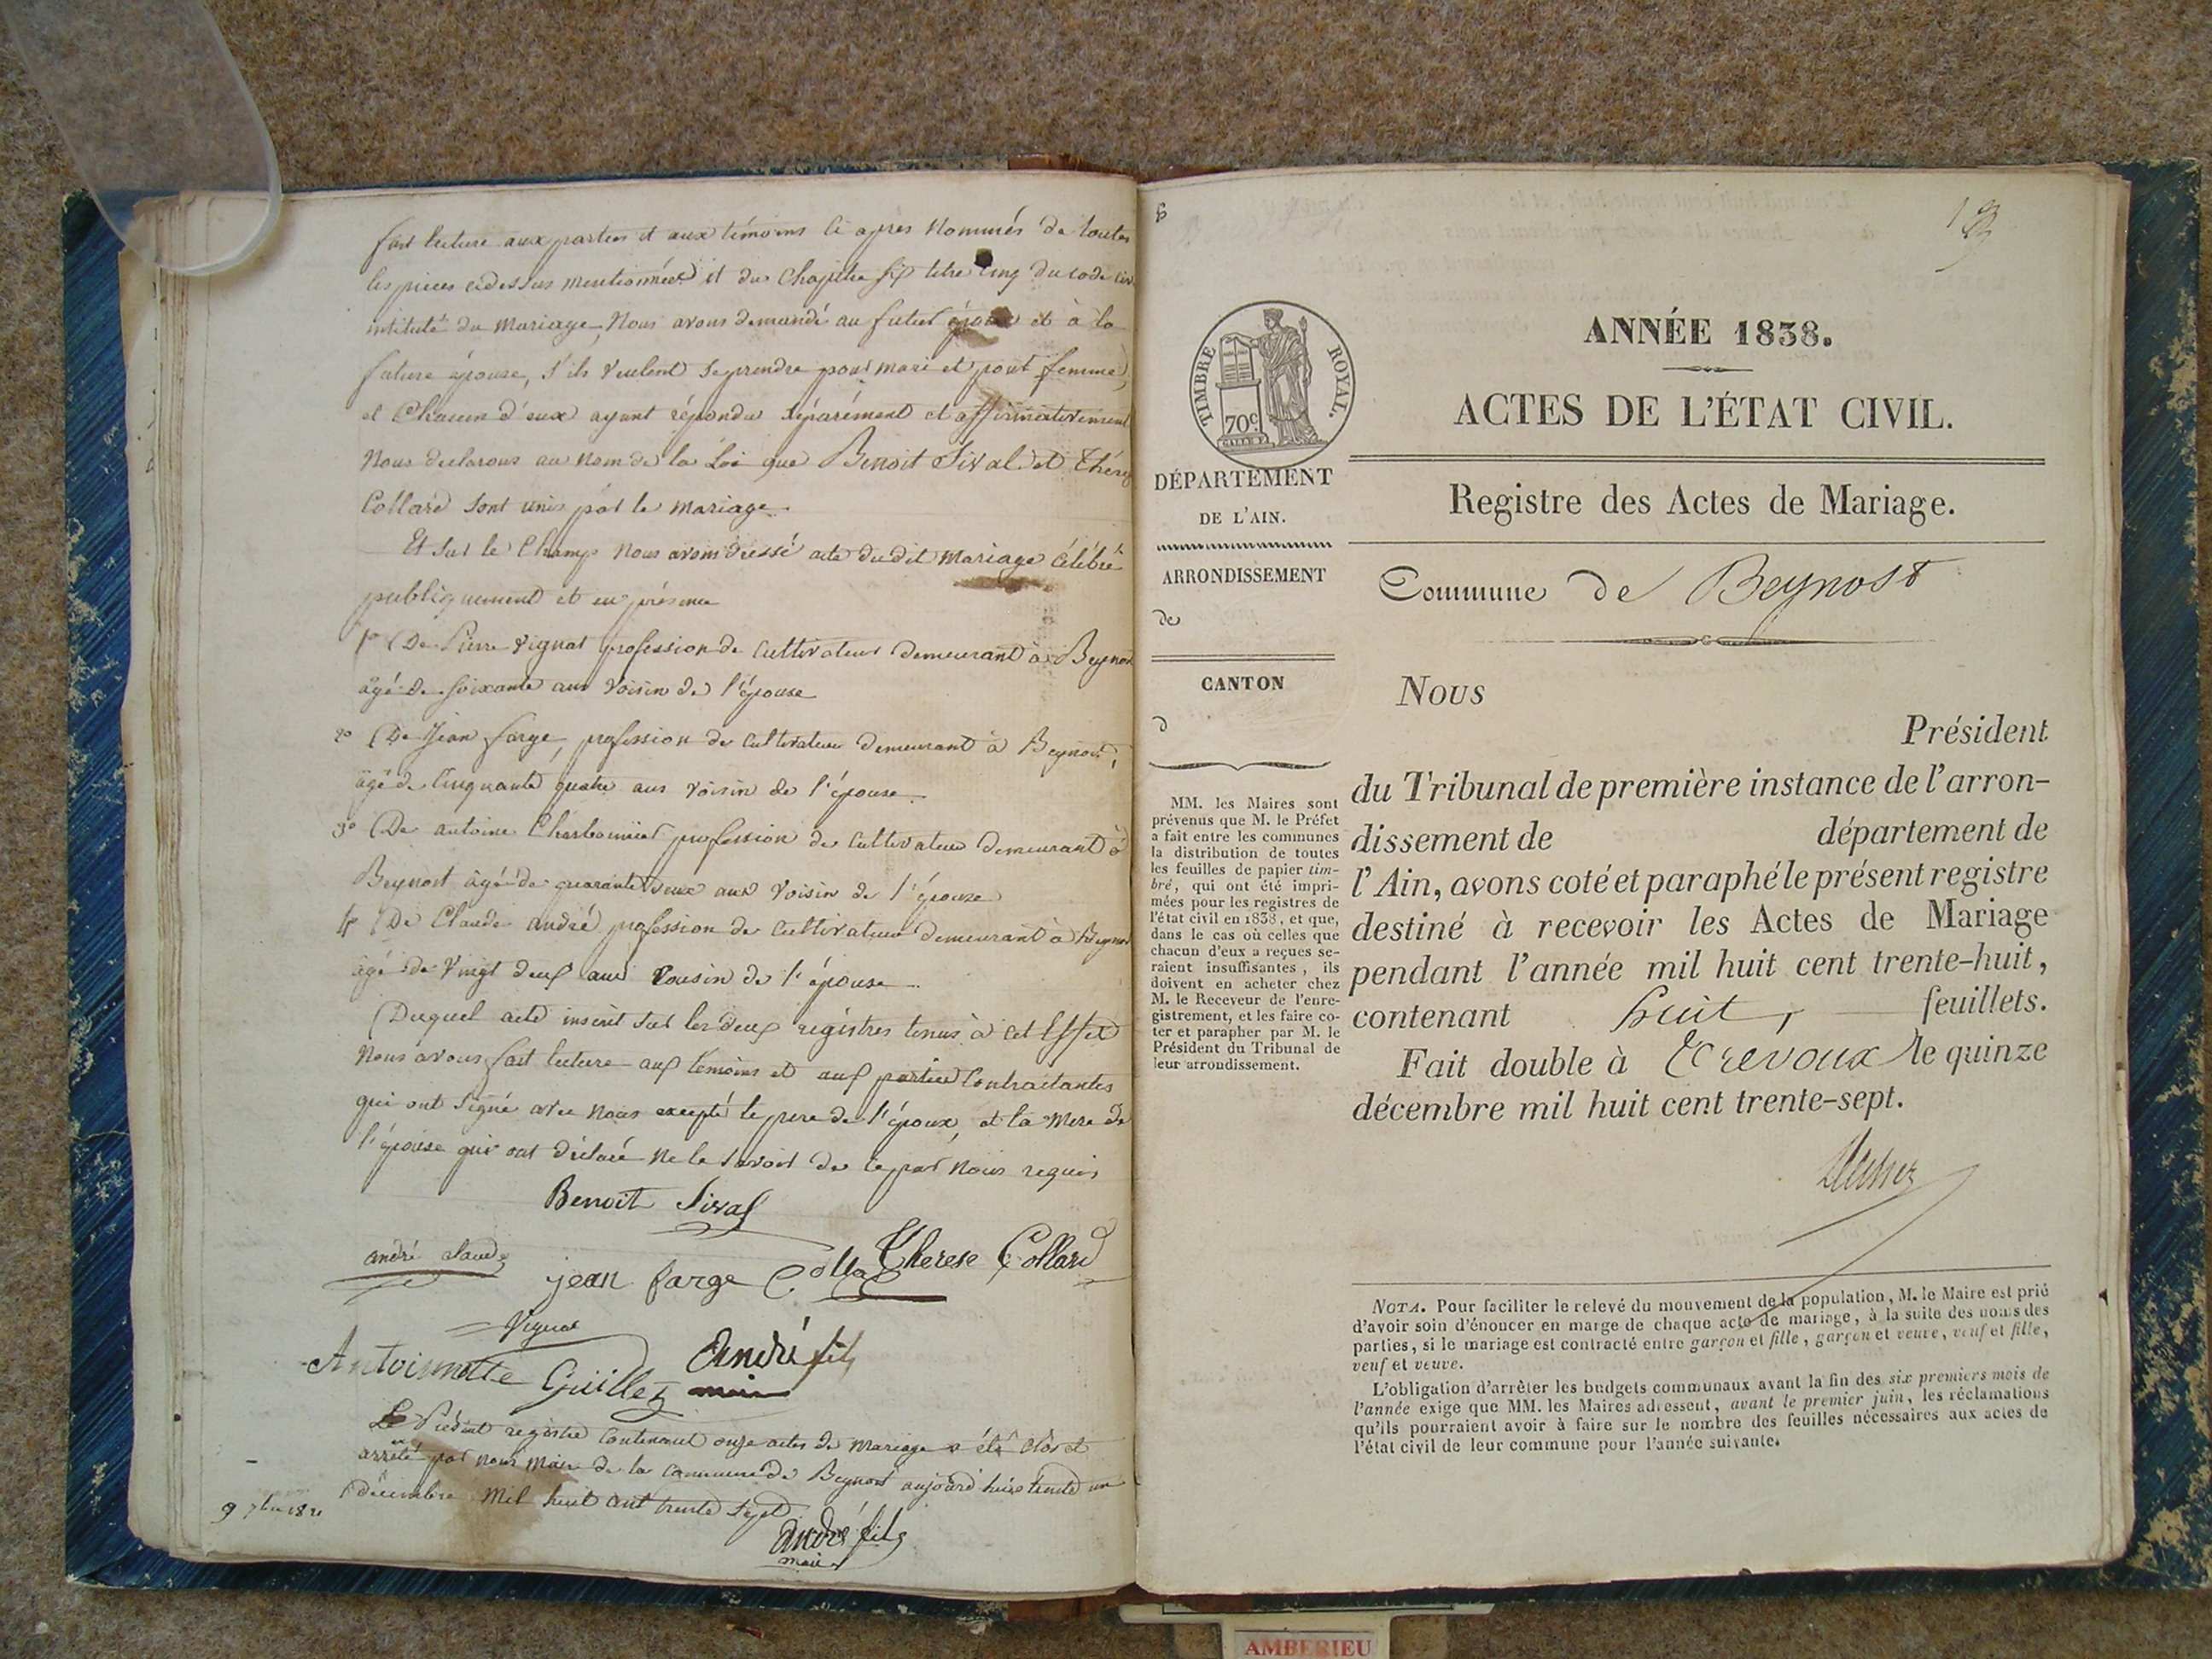 fait lecture aux parties et aux témoins ci apres nommés de toutes
les pieces cidessus mentionnées et du Chapitre six titre cinq du code civ
intitulé du mariage, Nous avons demandé au futur époux et à la
future épouse, s'ils veulent se prendre pour mari et pour femme,
et Chacun d'eux ayant répondu séparément et affirmativement
Nous declarons au nom de la Loi que Benoit Sival et Thérèse
Collard sont unis par le mariage.
Et sur le Champ nous avons dressé acte du dit mariage célébré
publiquement et en présence
1° De Pierre Vignat profession de Cultivateur demeurant à Beynost
âgé de soixante ans voisin de l'épouse
2° De Jean farge, profession de Cultivateur demeurant à Beynost,
âgé de Cinquante quatre ans voisin de l'épouse.
3° De antoine Charbonnier profession de Cultivateur demeurant à
Beynost âgé de quarante deux ans voisin de l'épouse
4° De Claude andré profession de Cultivateur demeurant à Beynost
âgé de vingt deux ans Cousin de l'épouse.
Duquel acte inscrit sur les deux registres tenus à cet Effet
Nous avons fait lecture aux témoins et aux parties Contractantes
qui ont signé avec nous excepté le pere de l'époux, et la mere de
l'épouse qui ont déclaré ne le savoir de ce par nous requis
Benoit Sival
andré claude jean farge Colla Therese Collard
Vignat
Antoinette Guillez André fils
maire
Le Présent registre Contenant onze actes de mariage a été clos et
arrêté par nous maire de la commune de Beynost aujourd'hui trente un
décembre mil huit cent trente sept
André fils
maire
6
TIMBRE ROYAL.
70c
ANNÉE 1838.
ACTES DE L'ÉTAT CIVIL.
Registre des Actes de Mariage.
Commune de Beynost
DÉPARTEMENT
DE L'AIN.
ARRONDISSEMENT
de
CANTON
d
MM. les Maires sont
prévenus que M. le Préfet
a fait entre les communes
la distribution de toutes
les feuilles de papier tim-
bré, qui ont été impri-
mées pour les registres de
l'état civil en 1838, et que,
dans le cas où celles que
chacun d'eux a reçues se-
raient insuffisantes, ils
doivent en acheter chez
M. le Receveur de l'enre-
gistrement, et les faire co-
ter et parapher par M. le
Président du Tribunal de
leur arrondissement.
Nous
Président
du Tribunal de première instance de l'arron-
dissement de département de
l'Ain, avons coté et paraphé le présent registre
destiné à recevoir les Actes de Mariage
pendant l'année mil huit cent trente-huit,
contenant huit, feuillets.
Fait double à Trevoux le quinze
décembre mil huit cent trente-sept.
NOTA. Pour faciliter le relevé du mouvement de la population, M. le Maire est prié
d'avoir soin d'énoncer en marge de chaque acte de mariage, à la suite des noms des
parties, si le mariage est contracté entre garçon et fille, garçon et veuve, veuf et fille,
veuf et veuve.
L'obligation d'arrêter les budgets communaux avant la fin des six premiers mois de
l'année exige que MM. les Maires adressent, avant le premier juin, les réclamations
qu'ils pourraient avoir à faire sur le nombre des feuilles nécessaires aux actes de
l'état civil de leur commune pour l'année suivante.
AMBERIEU